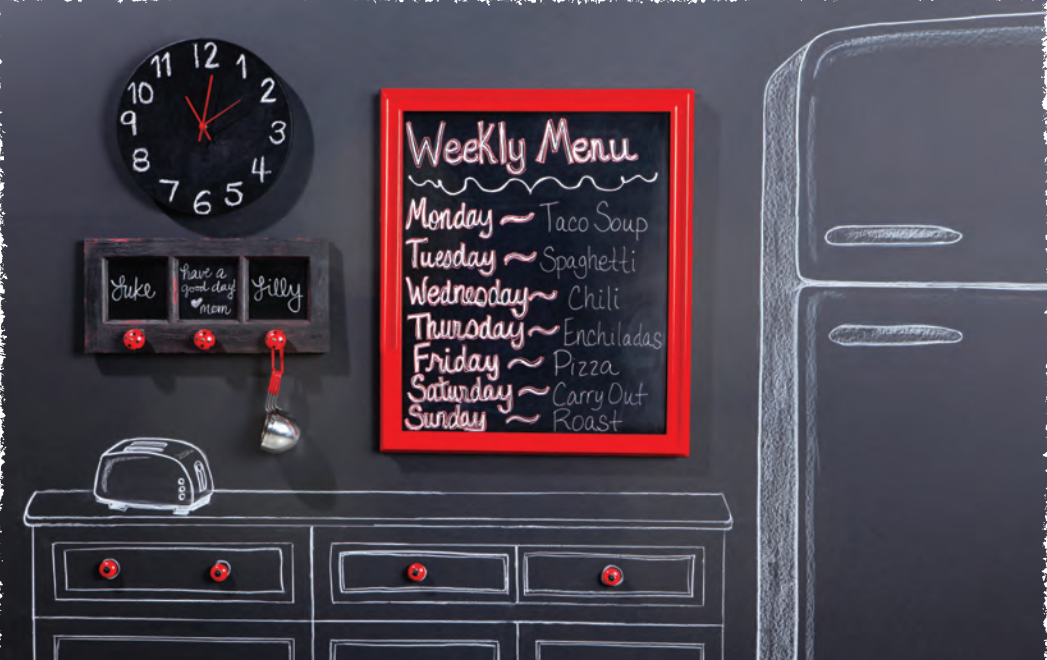 12
1
2
3
4
5
6
7
8
9
10
11
Luke
have a
good day!
Mom
Lilly
Weekly Menu
Monday ~ Taco Soup
Tuesday ~ Spaghetti
Wednesday ~ Chili
Thursday ~ Enchiladas
Friday ~ Pizza
Saturday ~ Carry Out
Sunday ~ Roast